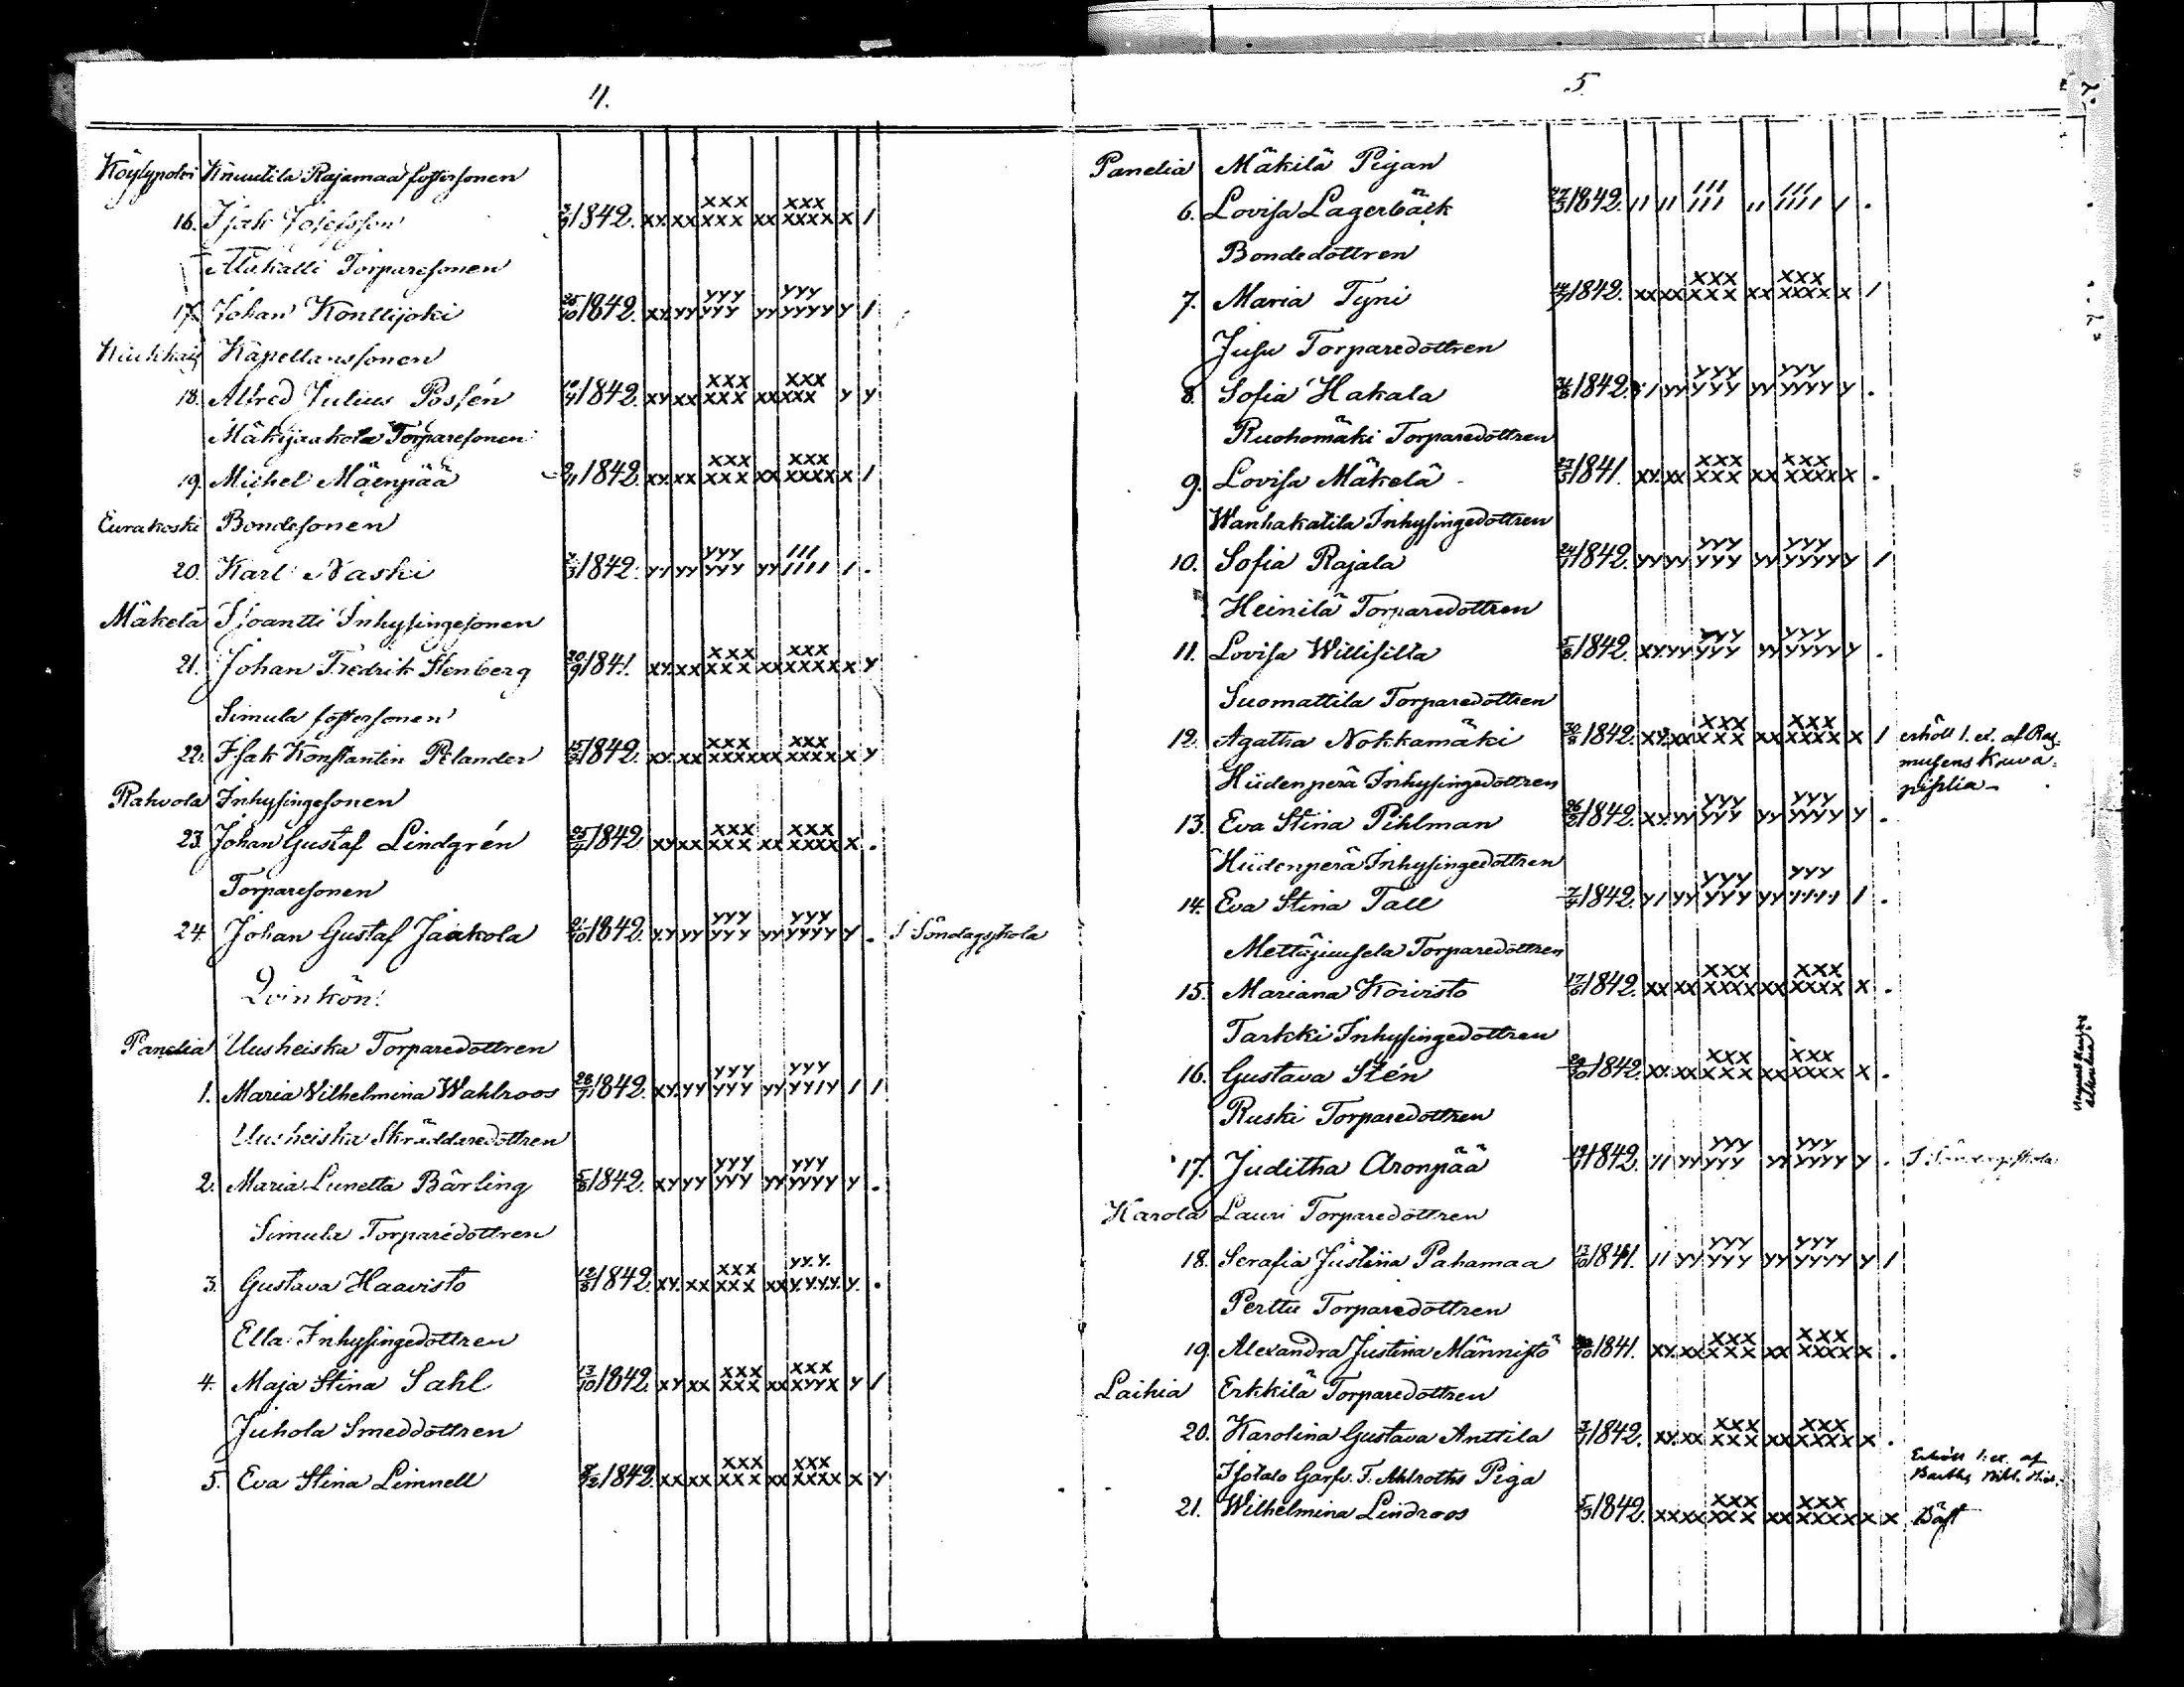 4.
Köylypolvi Knuutila Rajamaa fostersonen
16. Isak Josefsson 1842. xy. xx xxx xxx xx xxx xxxx x /
Torparesonen
17. Johan Konttijoki 26/10 1842. xy. yy yyy yyy yy yyy yyyy y /
Kapellanssonen
18. Alfred Julius Possén 1842. xy xx xxx xxx xx xxx xxx y y
Mäkijaakola Torparesonen
19. Michel Mäenpää 9/11 1842. xy. xx xxx xxx xx xxx xxxx x /
Eurakoski Bondesonen
20. Karl Naski 1842. y/ yy yyy yyy yy /// //// / .
Mäkelä Isoantti Inhysingesonen
21. Johan Fredrik Stenberg 20/9 1841. xy. xx xxx xxx xx xxx xxxx x y
Simula fostersonen
22. Isak Konstantin Pelander 1842. xy. xx xxx xxxx xx xxx xxxx x y
Rahvola Inhysingesonen
23. Johan Gustaf Lindgrén 1842 xy xx xxx xxx xx xxx xxxx x .
Torparesonen
24. Johan Gustaf Jaakola 21/10 1842. y.y yy yyy yyy yy yyy yyyy y . I Söndagsskola
Qvinkön.
Panelia Uusheiska Torparedottren
1. Maria Vilhelmina Wahlroos 28/7 1842. xy. yy yyy yyy yy yyy yy/y / /
Uusheiska Skräddaredottren
2. Maria Lunetta Bärling 5/8 1842. xy yy yyy yyy yy yyy yyyy y .
Simula Torparedottren
3. Gustava Haavisto 12/8 1842. xy. xx xxx xxx xx yy.y. y.y.y.y. y. .
Ella Inhysingedottren
4. Maja Stina Sahl 13/10 1842 xy xx xxx xxx xx xxx xyyx y /
Juhola Smeddottren
5. Eva Stina Limnell 1842. xx xx xxx xxx xx xxx xxxx x y
5.
Panelia Mäkilä Pigan
6. Lovisa Lagerbäck 27/3 1842. // // /// /// // /// //// / .
Bondedottren
7. Maria Tyni 1842. xx xx xxx xxx xx xxx xxxx x /
Jusu Torparedottren
8. Sofia Hakala 1842. yy yyy yyy yy yyy yyyy y .
Ruohomäki Torparedottren
9. Lovisa Mäkelä 1841. xy. xx xxx xxx xx xxx xxxx x .
Wanhakatila Inhysingedottren
10. Sofia Rajala 1842. yy yy yyy yyy yy yyy yyyy y /
Heinilä Torparedottren
11. Lovisa Willisilta 5/8 1842. xy. yy yyy yyy yy yyy yyyy y .
Suomattila Torparedottren
12. Agatha Nokkamäki 1842. xy. xx xxx xxx xx xxx xxxx x / erhöll 1. ex. af Ras-
musens Kuva-
piplia -
Hiidenperä Inhysingedottren
13. Eva Stina Pihlman 1842. xy. yy yyy yyy yy yyy yyyy y .
Hiidenperä Inhysingedottren
14. Eva Stina Tall 1842. y/ yy yyy yyy yy yyy / .
Mettäjuusela Torparedottren
15. Mariana Koivisto 1842. xx xx xxx xxxx xx xxx xxxx x .
Tarkki Inhysingedottren
16. Gustava Stén 1842. xy. xx xxx xxx xx xxx xxxx x .
Ruski Torparedottren
17. Juditha Aronpää 1842. y/ yy yyy yyy yy yyy yyyy y . I Söndagsskola
Karola Lauri Torparedottren
18. Serafia Justiina Pahamaa 1841. // yy yyy yyy yy yyy yyyy y /
Perttu Torparedottren
19. Alexandra Justina Männistö 1841. xy. xx xxx xxx xx xxx xxxx x .
Laihia Erkkilä Torparedottren
20. Karolina Gustava Anttila 1842. xy. xx xxx xxx xx xxx xxxx x .
Isotalo Garfv. F. Ahlroths Piga Erhöll 1: ex. af
Barths Bibl. Hist.
21. Wilhelmina Lindroos 5/3 1842. xx xx xxx xxx xx xxx xxxx x x Bäst